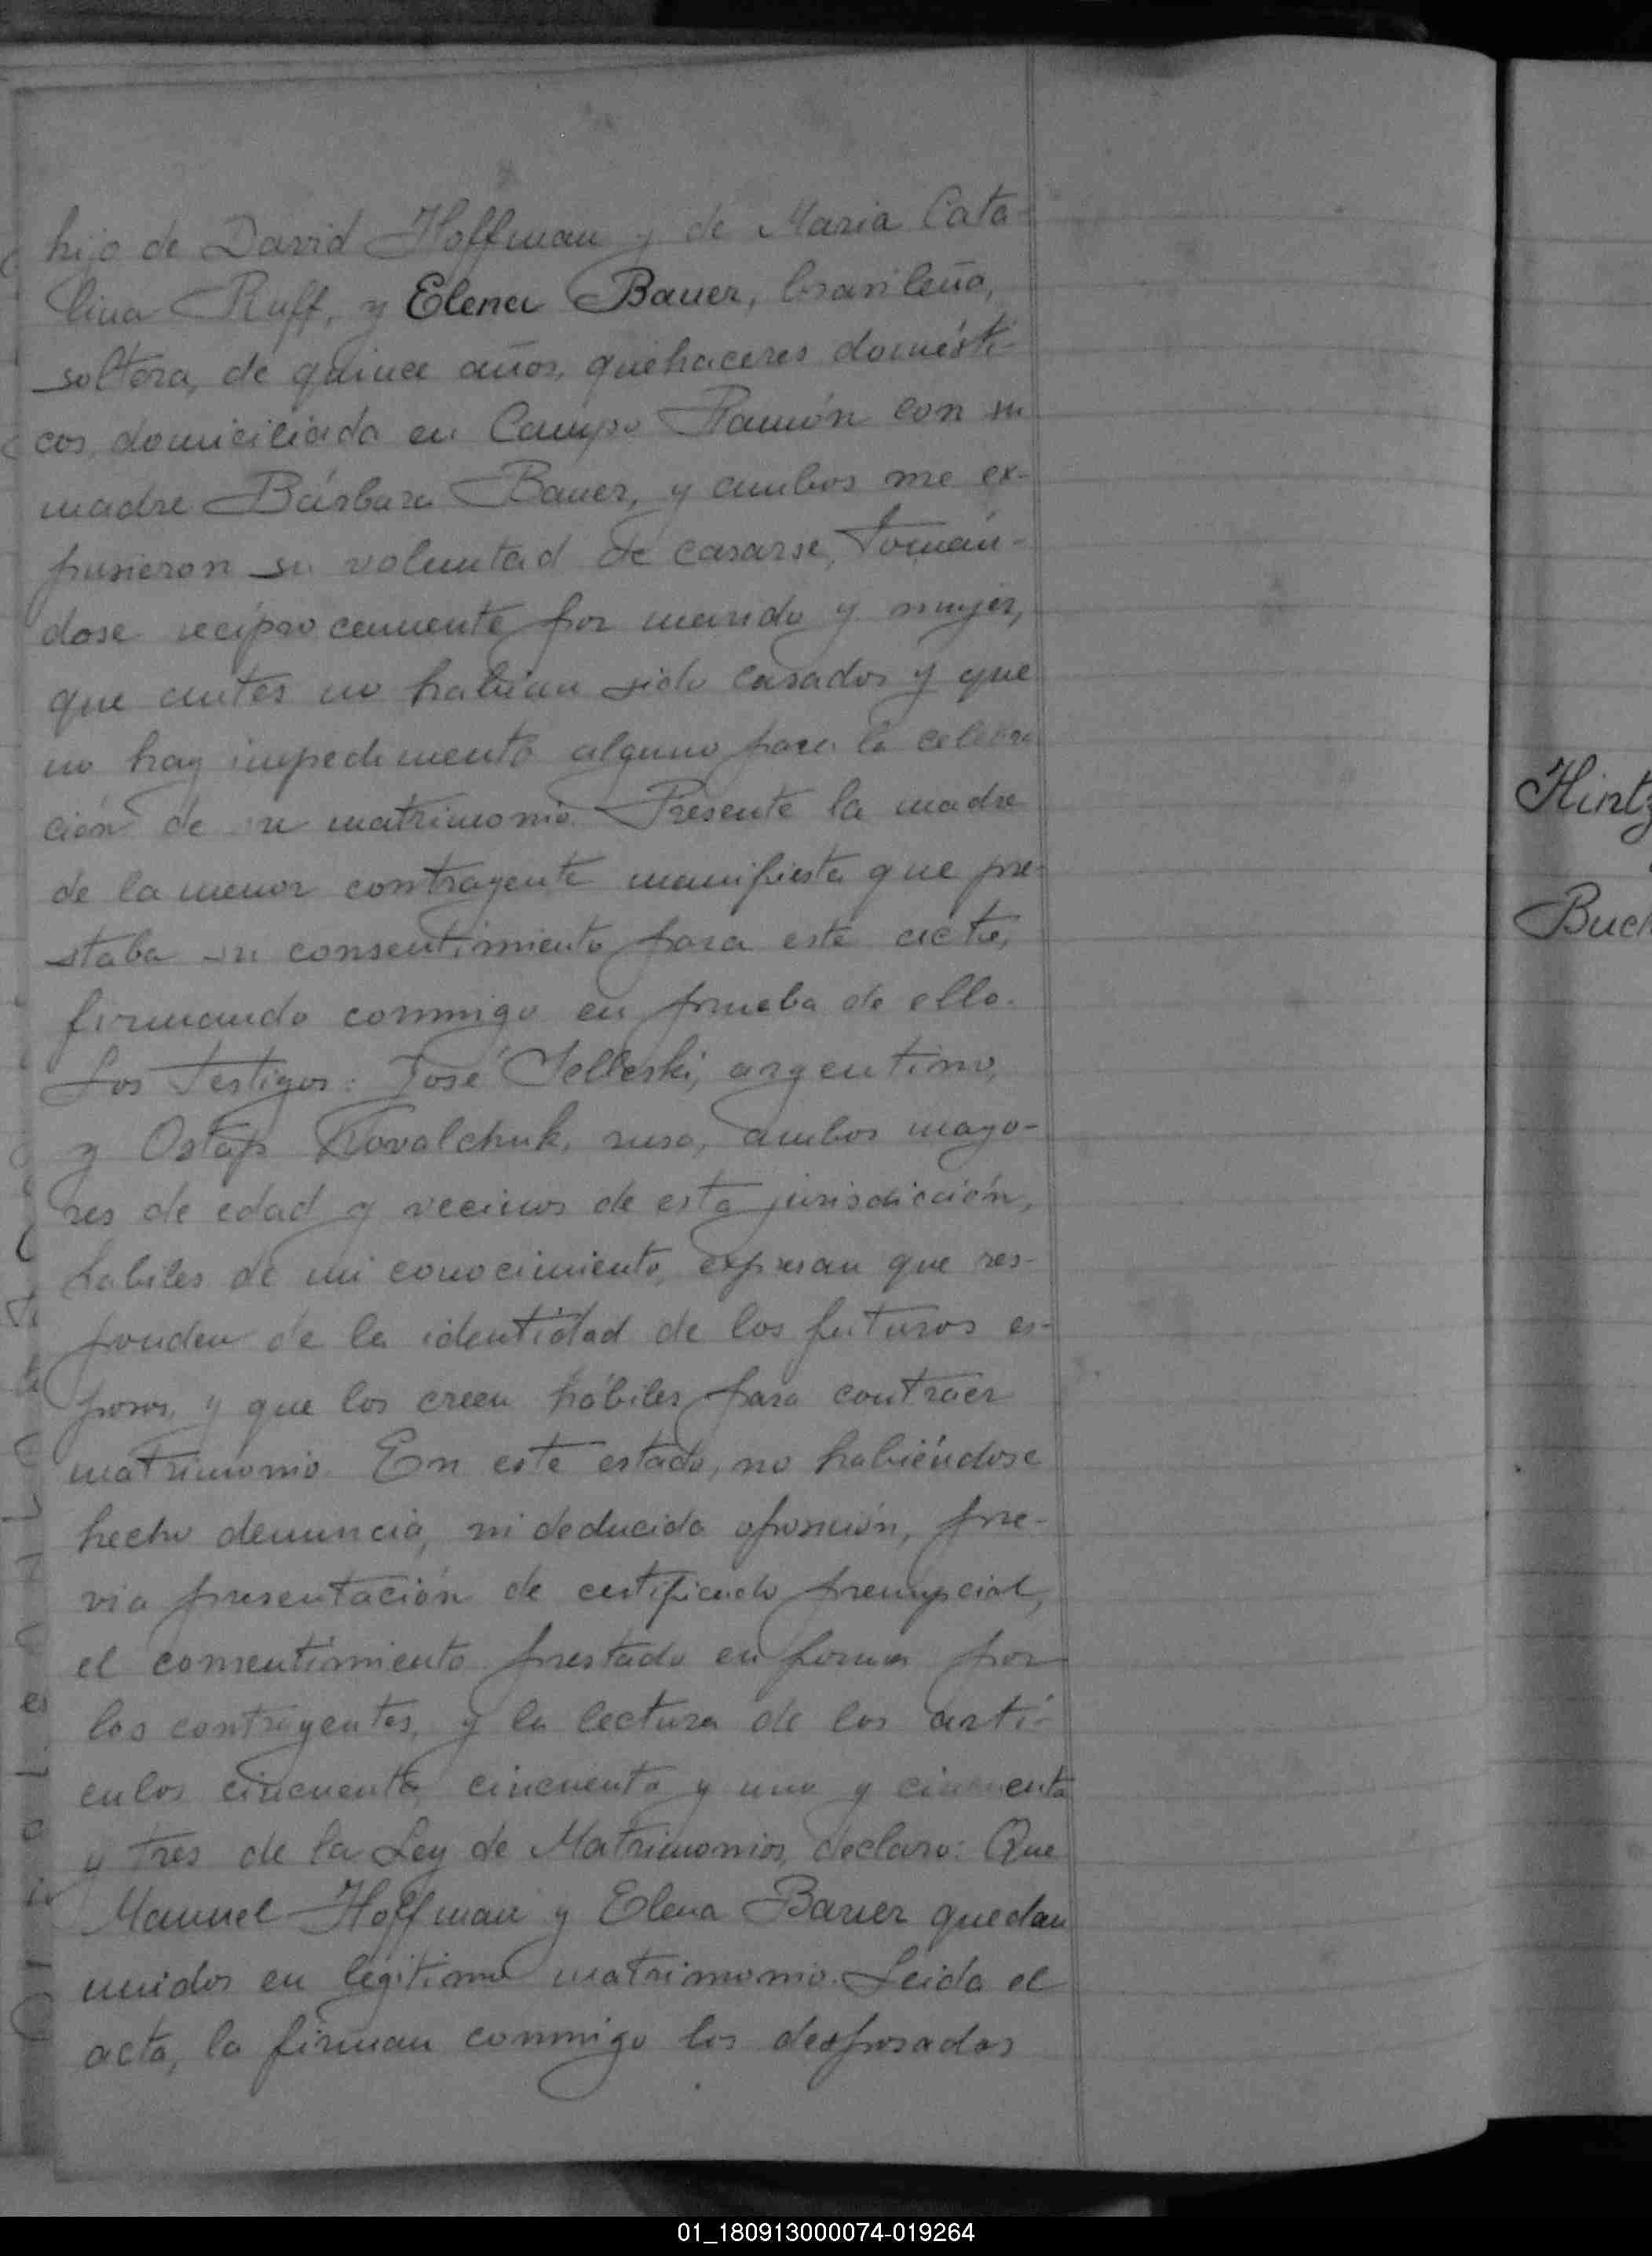 hijo de David Hoffman y de Maria Cata-
lina Ruff, y Elena Bauer, brasileña,
soltera, de quince años, quehaceres domésti-
cos, domiciliada en Campo Ramón con su
madre Bárbara Bauer, y ambos me ex-
pusieron su voluntad de casarse, tomán-
dose recíprocamente por marido y mujer,
que antes no habian sido casados y que
no hay impedimento alguno para la celebra
ción de su matrimonio. Presente la madre
de la menor contrayente manifiesta que pre-
staba su consentimiento para este acto,
firmando conmigo en prueba de ello.
Los Testigos: José Selleski, argentino,
y Ostap Kovalchuk, ruso, ambos mayo-
res de edad y vecinos de esta jurisdicción,
habiles de mi conocimiento, expresan que res-
ponden de la identidad de los futuros es-
posos, y que los creen hábiles para contraer
matrimonio. En este estado, no habiéndose
hecho denuncia, ni deducido oposición, pre-
via presentación de certificado prenupcial,
el consentimiento prestado en forma por
los contrayentes, y la lectura de los artí-
culos cincuenta, cincuenta y uno y cincuenta
y tres de la Ley de Matrimonios, declaro: Que
Manuel Hoffman y Elena Bauer quedan
unidos en legitimo matrimonio. Leida el
acta, la firman conmigo los desposados
Hintz
Buch
01_180913000074-019264